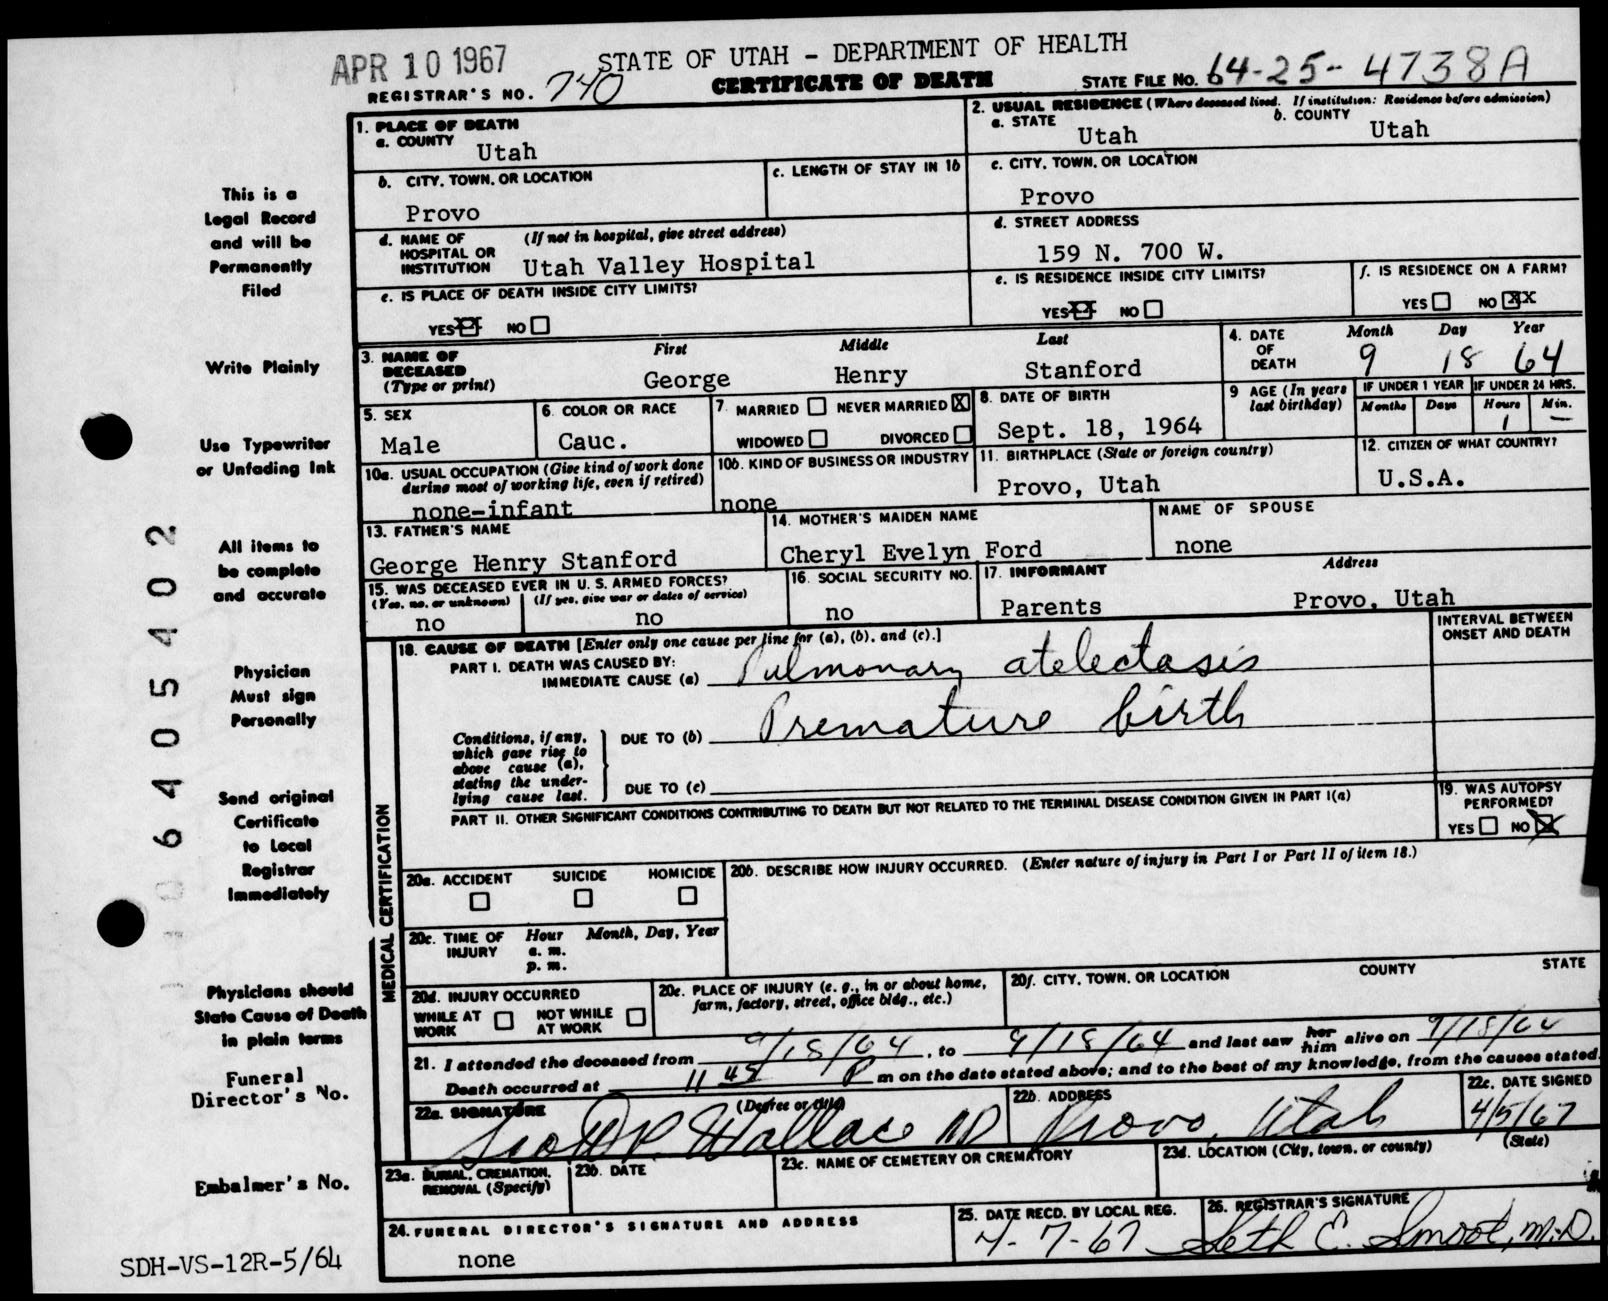 APR 10 1967
STATE OF UTAH - DEPARTMENT OF HEALTH
CERTIFICATE OF DEATH
REGISTRAR'S NO. 740
STATE FILE NO. 64-25-4738A
1. PLACE OF DEATH
a. COUNTY
Utah
2. USUAL RESIDENCE (Where deceased lived. If institution: Residence before admission)
a. STATE
Utah
b. COUNTY
Utah
b. CITY, TOWN, OR LOCATION
Provo
c. LENGTH OF STAY IN 1b
c. CITY, TOWN, OR LOCATION
Provo
d. NAME OF HOSPITAL OR INSTITUTION
(If not in hospital, give street address)
Utah Valley Hospital
d. STREET ADDRESS
159 N. 700 W.
e. IS PLACE OF DEATH INSIDE CITY LIMITS?
YES NO
e. IS RESIDENCE INSIDE CITY LIMITS?
YES NO
f. IS RESIDENCE ON A FARM?
YES NO XX
3. NAME OF DECEASED (Type or print)
First Middle Last
George Henry Stanford
4. DATE OF DEATH
Month Day Year
9 18 64
5. SEX
Male
6. COLOR OR RACE
Cauc.
7. MARRIED NEVER MARRIED X
WIDOWED DIVORCED
8. DATE OF BIRTH
Sept. 18, 1964
9 AGE (In years last birthday)
IF UNDER 1 YEAR IF UNDER 24 HRS.
Months Days Hours Min.
1 —
10a. USUAL OCCUPATION (Give kind of work done during most of working life, even if retired)
none-infant
10b. KIND OF BUSINESS OR INDUSTRY
none
11. BIRTHPLACE (State or foreign country)
Provo, Utah
12. CITIZEN OF WHAT COUNTRY?
U.S.A.
13. FATHER'S NAME
George Henry Stanford
14. MOTHER'S MAIDEN NAME
Cheryl Evelyn Ford
NAME OF SPOUSE
none
15. WAS DECEASED EVER IN U. S. ARMED FORCES?
(Yes, no, or unknown) (If yes, give war or dates of service)
no no
16. SOCIAL SECURITY NO.
no
17. INFORMANT Address
Parents Provo, Utah
MEDICAL CERTIFICATION
18. CAUSE OF DEATH [Enter only one cause per line for (a), (b), and (c).]
INTERVAL BETWEEN ONSET AND DEATH
PART I. DEATH WAS CAUSED BY:
IMMEDIATE CAUSE (a) Pulmonary atelectasis
Conditions, if any, which gave rise to above cause (a), stating the underlying cause last.
DUE TO (b) Premature birth
DUE TO (c)
PART II. OTHER SIGNIFICANT CONDITIONS CONTRIBUTING TO DEATH BUT NOT RELATED TO THE TERMINAL DISEASE CONDITION GIVEN IN PART I(a)
19. WAS AUTOPSY PERFORMED?
YES NO X
20a. ACCIDENT SUICIDE HOMICIDE
20b. DESCRIBE HOW INJURY OCCURRED. (Enter nature of injury in Part I or Part II of item 18.)
20c. TIME OF INJURY
Hour Month, Day, Year
a. m.
p. m.
20d. INJURY OCCURRED
WHILE AT WORK NOT WHILE AT WORK
20e. PLACE OF INJURY (e. g., in or about home, farm, factory, street, office bldg., etc.)
20f. CITY, TOWN, OR LOCATION COUNTY STATE
21. I attended the deceased from 9/18/64, to 9/18/64 and last saw her him alive on 9/18/64
Death occurred at 11 45 P m on the date stated above; and to the best of my knowledge, from the causes stated.
22a. SIGNATURE (Degree or title)
Scott P. Wallace MD
22b. ADDRESS
Provo, Utah
22c. DATE SIGNED
4/5/67
23a. BURIAL, CREMATION, REMOVAL (Specify)
23b. DATE
23c. NAME OF CEMETERY OR CREMATORY
23d. LOCATION (City, town, or county) (State)
24. FUNERAL DIRECTOR'S SIGNATURE AND ADDRESS
none
25. DATE RECD. BY LOCAL REG.
4-7-67
26. REGISTRAR'S SIGNATURE
Seth E. Smoot, M.D.
This is a
Legal Record
and will be
Permanently
Filed
Write Plainly
Use Typewriter
or Unfading Ink
All items to
be complete
and accurate
Physician
Must sign
Personally
Send original
Certificate
to Local
Registrar
Immediately
Physicians should
State Cause of Death
in plain terms
Funeral
Director's No.
Embalmer's No.
SDH-VS-12R-5/64
06405402